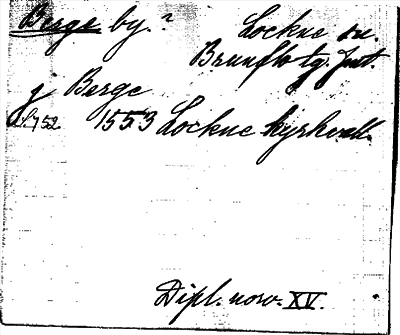 Berge by. ? Lockne sn.
Brunflo tg. Jmt.
j Berge
s. 752 1553 Lockne kyrkvall.
Dipl. norv. XV.